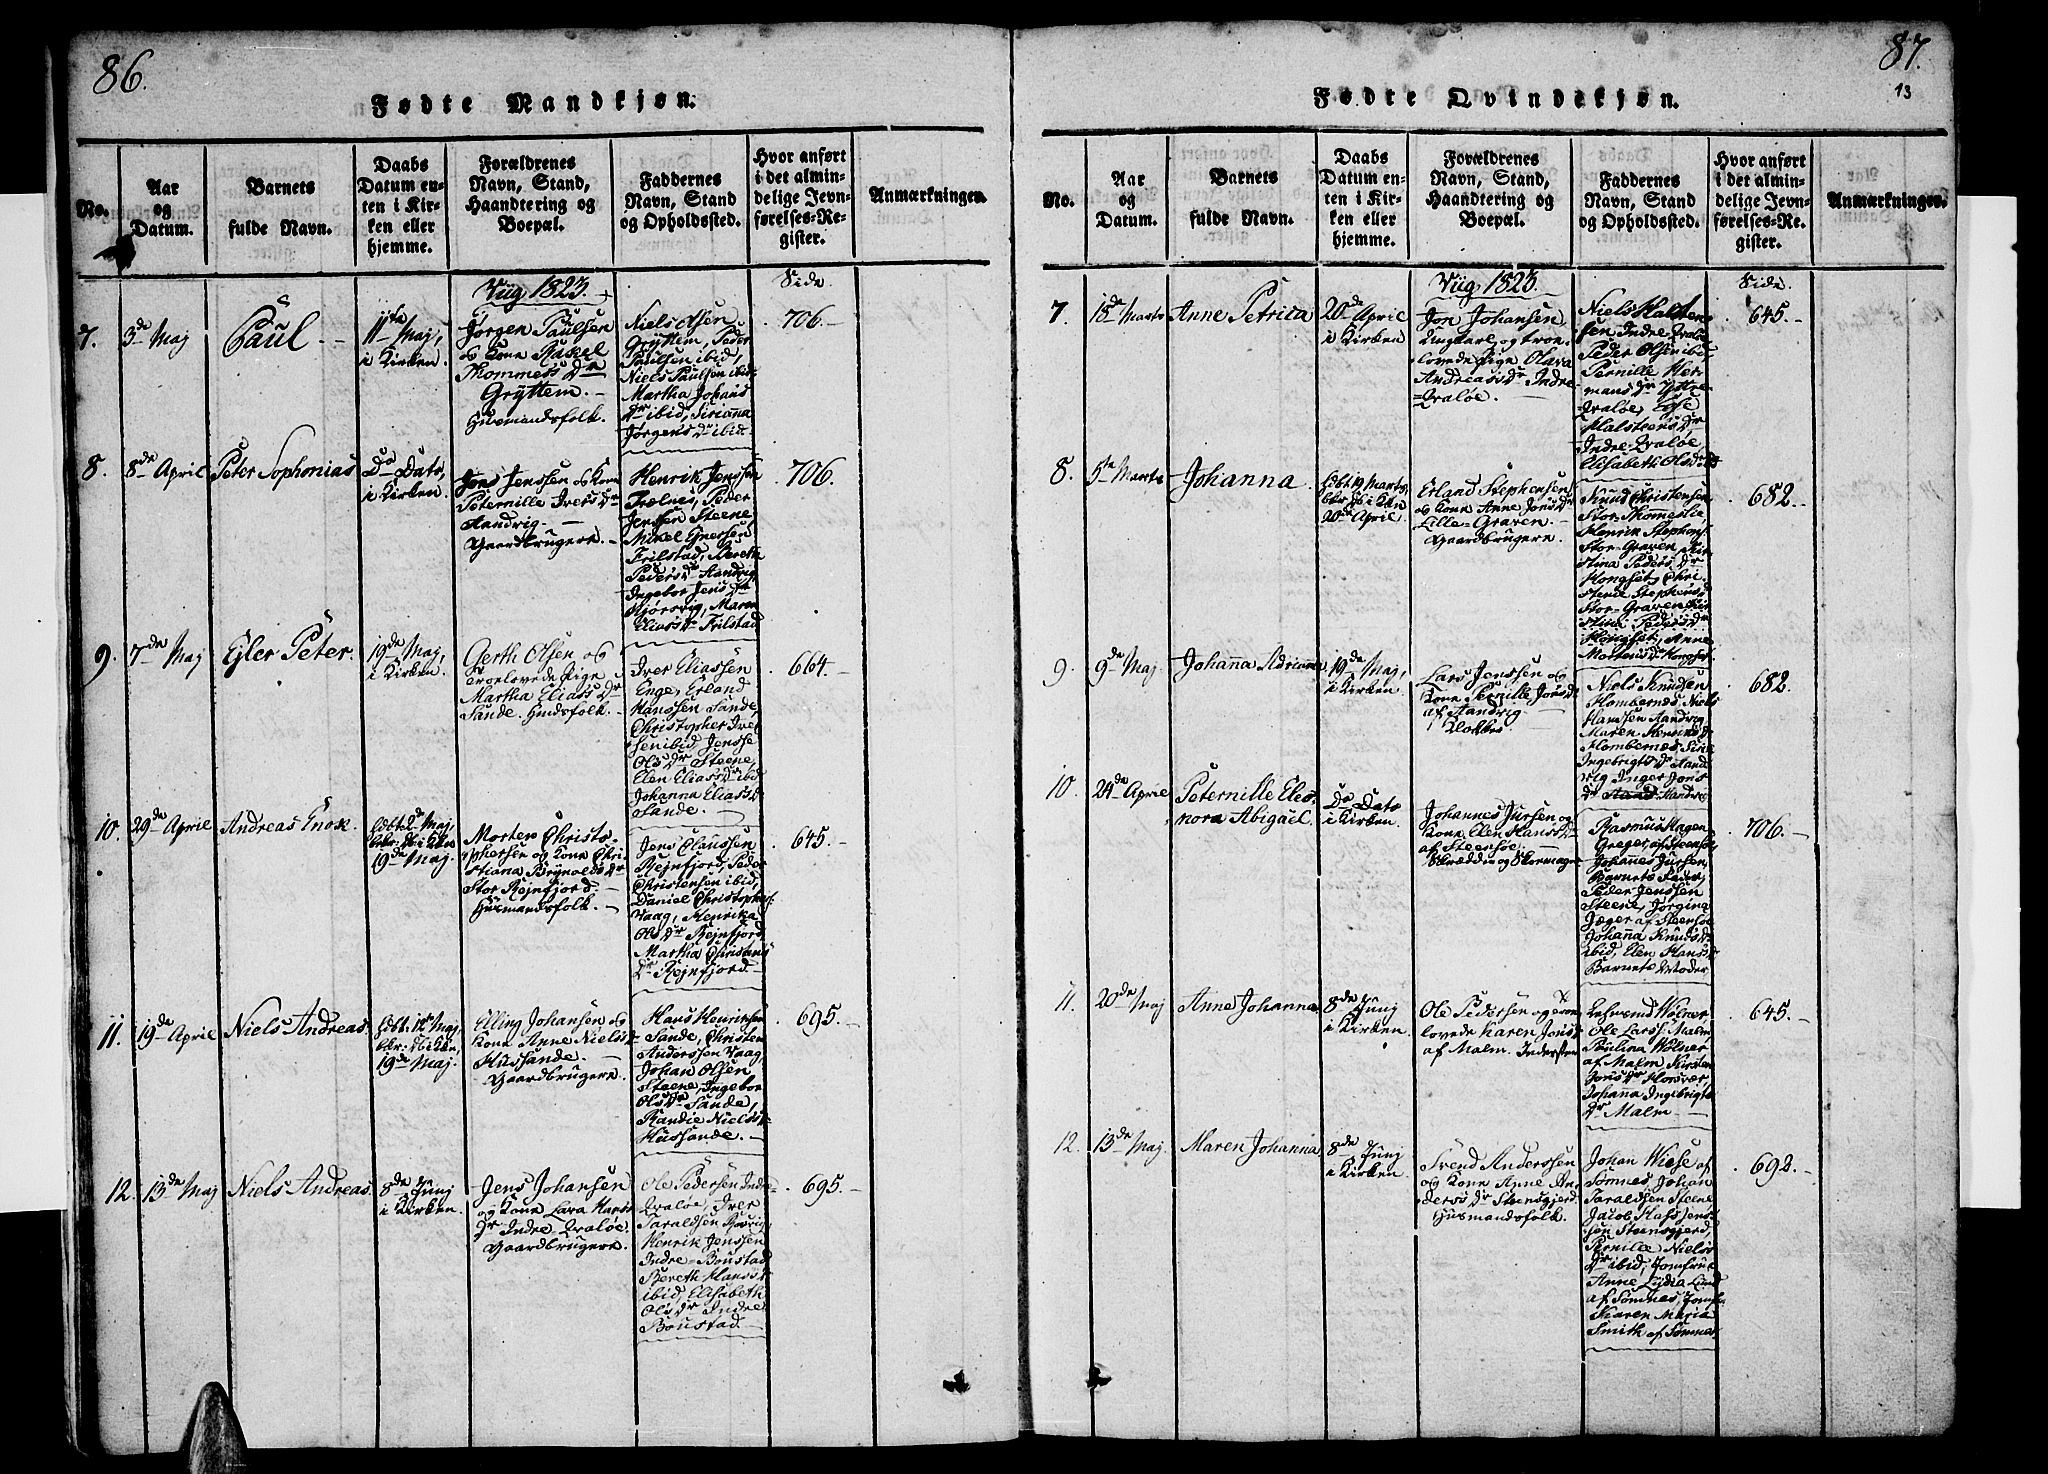 86.
Fødte Mandkjøn.
No.
Aar
og
Datum.
Barnets
fulde Navn.
Daabs
Datum en-
ten i Kir-
ken eller
hjemme.
Forældrenes
Navn, Stand,
Haandtering og
Boepæl.
Faddernes
Navn, Stand
og Opholdssted.
Hvor anført
i det almin-
delige Jevn-
førelses-Re-
gister.
Anmærkningen.
Viig 1823.
Side
7.
3de Maj
Paul
11te Maj,
i Kirken
Jørgen Paulsen
og Kone Rakel
Thommes Dr
Grÿttem.
Huusmandsfolk.
Niels Olsen
Grÿttem, Peder
Paulsen ibid,
Niels Paulsen ibid
Martha Johans
Dr ibid, Sirianna
Jørgens Dr ibid
706.
8.
8de April
Peter Sophonias
Do Dato,
i Kirken
Jens Jenssen og Kone
Peternille Ivers Dr
Aandvig.
Gaardbrugere.
Henrik Jenssen
Trælnes, Peder
Jenssen Steene
Mikel Ejnersen
Trilstad, Bereth
Peders Dr Aandvig
Ingebor Jens Dr
Maren
Elias Dr Trilstad
706.
9.
7de Maj
Ejler Peter.
19de Maj,
i Kirken.
Gerth Olsen og
troelovede Pige
Martha Elias Dr
Sande. Huusfolk.
Iver Eliassen
Enge, Erland
Hanssen Sande,
Christopher Ivers
sen ibid, Jensse
Ols Dr Steene,
Elen Elias Dr ibid
Johanna Elias Dr
Sande.
664.
10.
29de April
Andreas Enok
19de Maj.
Morten Christo-
phersen og Kone Chri-
stiana Brÿnolds Dr
Stor Rejnfjord.
Huusmandsfolk.
Jens Claussen
Rejnfjord, Peder
Christensen ibid,
Daniel Christophers.
Vaag, Henrika
Ols Dr Rejnfjord,
Martha Christians
Dr Rejnfjord.
645.
11.
19de April
Niels Andreas.
19de Maj.
Elling Johansen og
Kone Anne Niels Dr
Hussande.
Gaardbrugere.
Hans Henriksen
Sande, Christen
Anderssen Vaag,
Johan Olsen
Steene, Ingebor
Ols Dr Sande,
Randie Niels Dr
Hussande.
695.
12.
13de Maj
Niels Andreas.
8de Junj
i Kirken.
Jens Johansen
og Kone Lava Hans
Dr Indre Qvaløe.
Gaardbrugere.
Ole Pedersen Indre
Qvaløe, Iver
Taraldsen
Henrik Jenssen
Indre-Boustad
Bereth Hans Dr
ibid, Elisabeth
Ols Dr Indre
Boustad.
695.
87.
13
Fødte Qvindekjøn.
No.
Aar
og
Datum.
Barnets
fulde Navn.
Daabs
Datum en-
ten i Kir-
ken eller
hjemme.
Forældrenes
Navn, Stand,
Haandtering og
Boepæl.
Faddernes
Navn, Stand
og Opholdssted.
Hvor anført
i det almin-
delige Jevn-
førelses-Re-
gister.
Anmærkningen.
Viig 1823.
Side.
7.
Marts
Anne Petrica
20de April
i Kirken
Jon Johansen
Ungkarl og troe-
lovede Pige Olava
Andreas Dr Indre
Qvaløe.
Niels Halsten-
sen Indre Qvaløe
Peder Olsen ibid
Pernille Her-
mans Dr Yttre
Qvaløe,
Halsteens Dr
Indre Qvaløe
Elisabeth Ols Dr
645.
8.
5te Marts
Johanna.
20de April
Erland Stephensen
og Kone Anne Jons Dr
Lille-Graven.
Gaardbrugere.
Knud Christensen
Stor-Thommeslie
Henrik Stephens.
Stor-Graven, Kir-
stina Peders Dr
Hongset, Chri-
stence Stephens Dr
Stor-Graven, Kir-
stina Peders Dr
Hongset, Anne
Mortens Dr Hongset
682.
9.
9de Maj.
Johanna Adrianna
19de Maj,
i Kirken.
Lars Jenssen og
Kone Pernille Jons Dr
af Aandvig
Klokker.
Niels Knudsen
Hombernes, Niels
Hansen Aandvig
Maren Henriks Dr
Hombernes, Sine
Ingebrigts Dr Aand-
vig, Inger Jons
Dr Aandvig
682.
10.
24de April
Peternille Eleo-
nora Abigael.
Do Dato
i Kirken.
Johannes Jurssen og
Kone Elen Hans Dr
af Steensøe.
Skrædder og Skomager
Rasmus Hagen
Greger af Steensøe
Johannes Jurssen
Barnets Fader,
Peder Jenssen
Steene, Jorgina
Jæger af Steensøe
Johanna Knuds Dr
ibid, Elen Hans Dr
Barnets Moder
706.
11.
20de Maj
Anne Johanna.
8de Junj
i Kirken.
Ole Pedersen og troe-
lovede Karen Jons Dr
af Malm. Indersten
Wølner
Ole Lars. Malm
Paulina Wølner
af Malm Kirsten
Jons Dr Horsvær
Johanna Ingebrigts
Dr Malm
645.
12.
13de Maj.
Maren Johanna
8de Junj
i Kirken
Svend Anderssen
og Kone Anne An-
ders Dr Steensgjerd.
Huusmandsfolk.
Johan Wiese af
Sømnes, Johan
Taraldsen Steene
Jacob
sen Steensgjerd,
Pernille Niels
Dr ibid, Jomfrue
Anne Lydia Lund
af Sømnes, Jomfr.
Karen Maria
Smith af Sømnes
692.